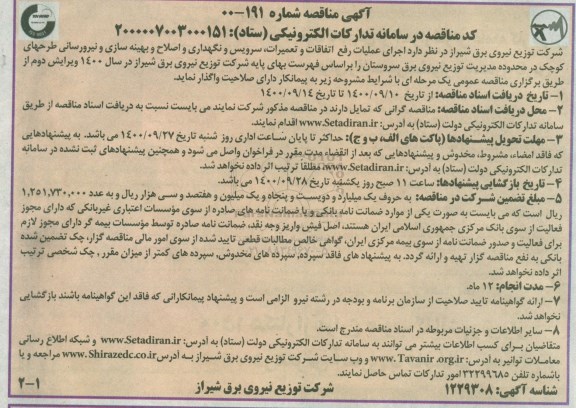 آگهی مناقصه شماره ۱۹۱-۰۰
کد مناقصه در سامانه تدارکات الکترونیکی (ستاد): ۲۰۰۰۰۰۷۰۰۳۰۰۰۱۵۱
شرکت توزیع نیروی برق شیراز در نظر دارد اجرای عملیات رفع اتفاقات و تعمیرات، سرویس و نگهداری و اصلاح و بهینه سازی و نیرورسانی طرحهای
کوچک در محدوده مدیریت توزیع برق سروستان را براساس فهرست بهای پایه شرکت توزیع نیروی برق شیراز در سال ۱۴۰۰ ویرایش دوم از
طریق برگزاری مناقصه عمومی یک مرحله ای با شرایط مشروحه زیر به پیمانکار دارای صلاحیت واگذار نماید.
۱- تاریخ دریافت اسناد مناقصه: از تاریخ ۱۴۰۰/۰۹/۱۰ تا تاریخ ۱۴۰۰/۰۹/۱۴
۲- محل دریافت اسناد مناقصه: مناقصه گرانی که تمایل دارند در مناقصه مذکور شرکت نمایند می بایست نسبت به دریافت اسناد مناقصه از طریق
سامانه تدارکات الکترونیکی دولت (ستاد) به آدرس: www.Setadiran.ir اقدام نمایند.
۳- مهلت تحویل پیشنهادها (پاکت های الف، ب و ج): حداکثر تا پایان ساعات اداری روز شنبه تاریخ ۱۴۰۰/۰۹/۲۷ می باشد. به پیشنهادهایی
که فاقد امضاء، مشروط، مخدوش و پیشنهادهایی که بعد از انقضاء مدت مقرر در فراخوان واصل می شود و همچنین پیشنهادهای ثبت نشده در سامانه
تدارکات الکترونیکی دولت (ستاد) به آدرس: www.Setadiran.ir مطلقا ترتیب اثر داده نخواهد شد.
۴- تاریخ بازگشایی پیشنهادها: ساعت ۱۱ صبح روز یکشنبه تاریخ ۱۴۰۰/۰۹/۲۸ می باشد.
۵- مبلغ تضمین شرکت در مناقصه: به حروف یک میلیارد و دویست و پنجاه و یک میلیون و هفتصد و سی هزار ریال و به عدد ۱,۲۵۱,۷۳۰,۰۰۰
ریال است که می بایست به صورت یکی از موارد ضمانت نامه بانکی و یا ضمانت نامه های صادره از سوی مؤسسات اعتباری غیربانکی که دارای مجوز
فعالیت از سوی بانک مرکزی جمهوری اسلامی ایران هستند، اصل فیش واریز وجه نقد، ضمانت نامه صادره توسط مؤسسات بیمه گر دارای مجوز لازم
برای فعالیت و صدور ضمانت نامه از سوی بیمه مرکزی ایران، گواهی خالص مطالبات قطعی تایید شده از سوی امور مالی مناقصه گزار، چک تضمین شده
بانکی به نفع مناقصه گزار تهیه و ارائه گردد. به پیشنهاد های فاقد سپرده، سپرده های مخدوش، سپرده های کمتر از میزان مقرر، چک شخصی ترتیب
اثر داده نخواهد شد.
۶- مدت انجام: ۱۲ ماه.
۷- ارائه گواهینامه تایید صلاحیت از سازمان برنامه و بودجه در رشته نیرو الزامی است و پیشنهاد پیمانکارانی که فاقد این گواهینامه باشند بازگشایی
نخواهد شد.
۸- سایر اطلاعات و جزئیات مربوطه در اسناد مناقصه مندرج است.
متقاضیان برای کسب اطلاعات بیشتر می توانند به سامانه تدارکات الکترونیکی دولت (ستاد) به آدرس: www.Setadiran.ir و شبکه اطلاع رسانی
معاملات توانیر به آدرس: www.Tavanir.org.ir و وب سایت شرکت توزیع نیروی برق شیراز به آدرس www.Shirazedc.co.ir مراجعه و یا
باشماره تلفن ۳۲۲۹۹۶۸۵ امور تدارکات تماس حاصل نمایند.
شناسه آگهی: ۱۲۲۹۳۰۸ شرکت توزیع نیروی برق شیراز ۲-۱